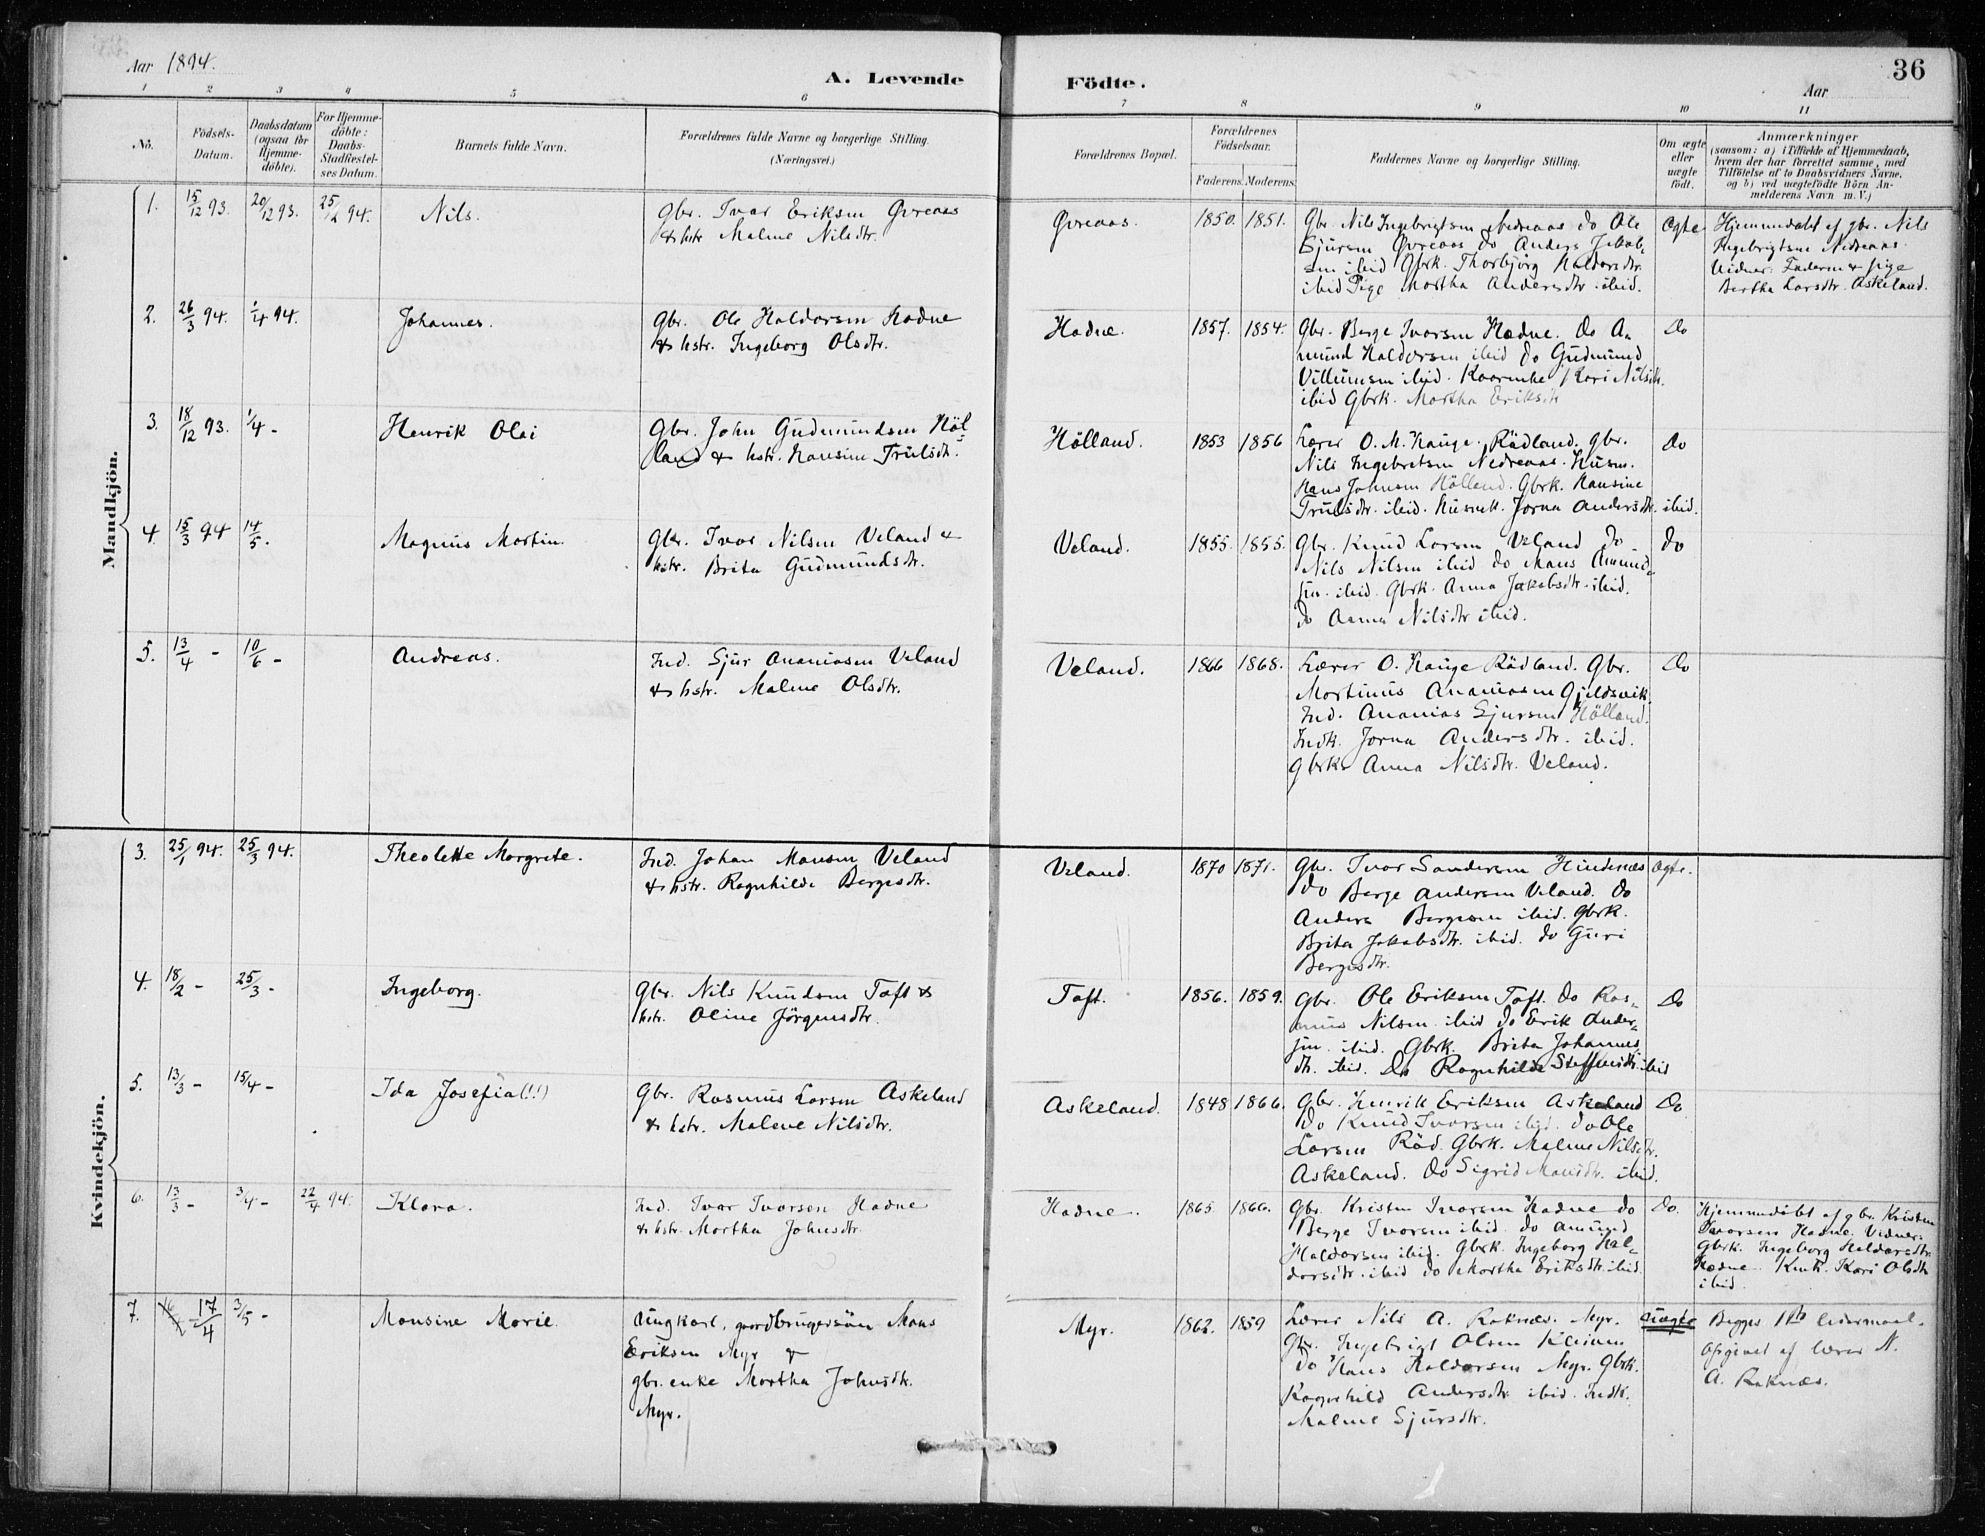 Aar 1894.
A. Levende
Födte.
36
Aar
1 2 3 4 5 6 7 8 9 10 11
No.
Födsels-
Datum.
Daabsdatum
(ogsaa for
Hjemme-
döbte).
For Hjemme-
döbte:
Daabs-
Stadfæstel-
ses Datum.
Barnets fulde Navn.
Forældrenes fulde Navne og borgerlige Stilling.
(Næringsvei.)
Forældrenes Bopæl.
Forældrenes
Födselsaar.
Faderens. Moderens.
Faddernes Navne og borgerlige Stilling.
Om ægte
eller
uægte
födt.
Anmærkninger
(saasom: a) i Tilfælde af Hjemmedaab,
hvem der har forrettet samme, med
Tilföielse af to Daabsvidners Navne.
og b) ved uægtefödte Börn An-
melderens Navn m. V.)
Mandkjön.
1. 15/12 93. 20/12 93. 25/ 94. Nils.
Gbr. Ivar Eriksen Øvreaas
& hstr Malene Nilsdtr.
Øvreaas. 1850. 1851.
Gbr. Nils Ingebrigtsen Nedreaas do Ole
Sjursen Øvreaas do Anders Jakob-
sen ibid Gbrk. Thorbjørg Haldorsdtr.
ibid Pige Martha Andersdtr. ibid.
Ægte
Hjemmedøbt af gbr. Nils
Ingebrigtsen Nedreaas.
Vidner: Faderen & pige
Bertha Larsdtr. Askeland.
2. 26/3 94. 1/4 94. Johannes.
Gbr. Ole Haldorsen Hadne
& hstr. Ingeborg Olsdtr.
Hadne. 1857. 1854.
Gbr. Berge Ivarsen Hadne. do A-
mund Haldorsen ibid do Gudmund
Villumsen ibid. Kaarenke Kari Nilsdtr.
ibid Gbrk. Martha Eriksdtr
Do
3. 18/12 93. 1/4 - Henrik Olai
Gbr. John Gudmundsen Höl-
land & hstr. Hansine Trulsdtr.
Hölland. 1853 1856
Lærer O. M. Hauge. Rödland. Gbr.
Nils Ingebretsen Nedreaas. Husm.
Hans Johnsen Hölland. Gbrk. Hansine
Trulsdtr. ibid. Husmk. Jorna Andersdtr. ibid.
Do
4. 15/3 94 14/5 - Magnus Martin.
Gbr. Ivar Nilsen Veland &
hstr. Brita Gudmundsdtr.
Veland. 1855. 1855.
Gbr. Knud Larsen Veland do
Nils Nilsen ibid do Mans Amund-
sen. ibid. Gbrk. Anna Jakobsdtr. ibid.
do Anna Nilsdtr ibid.
Do
5. 13/4 - 10/6 - Andreas.
Ind. Sjur Ananiasen Veland
& hstr. Malene Olsdtr.
Veland. 1866 1868.
Lærer O. Hauge Rödland. Gbr.
Martinus Ananiasen Gjeldsvik.
Ind. Ananias Sjursen Hölland.
Indk. Jorna Andersdtr. ibid.
Gbrk. Anna Nilsdtr. Veland.
Do
Kvindekjön.
3. 25/1 94. 25/3 94. Theolette Margrete.
Ind. Johan Mansen Veland
& hstr. Ragnhilde Bergesdtr.
Veland. 1870 1871.
Gbr. Ivar Sandersen Hindenæs
do Berge Andersen Veland. do
Anders Bergesen ibid. Gbrk.
Brita Jakobsdtr. ibid. do Guri
Bergesdtr.
Ægte.
4. 18/2 - 25/3 - Ingeborg.
Gbr. Nils Knudsen Toft &
hstr. Oline Jörgensdtr.
Toft. 1856. 1859.
Gbr. Ole Eriksen Toft. do Ras-
mus Nilsen ibid do Erik Ander-
sen ibid. Gbrk. Brita Johannes-
dtr. ibid. Do Ragnhilde Steffensdtr. ibid
Do
5. 13/3 - 15/4 - Ida Josefia(!!)
Gbr. Rasmus Larsen Askeland
& hstr. Malene Nilsdtr.
Askeland. 1848 1866.
Gbr. Henrik Eriksen Askeland
do Knud Ivarsen ibid. do Ole
Larsen Röd. Gbrk. Malene Nilsdtr.
Askeland. do Sigrid Mansdtr. ibid.
Do
6. 13/3 - 3/4 - 22/4 94. Klara.
Ind. Ivar Ivarsen Hadne
& hstr. Martha Johnsdtr.
Hadne. 1865. 1866.
Gbr. Kristen Ivarsen Hadne do
Berge Ivarsen ibid. do Amund
Haldorsen ibid. Gbrk. Ingeborg Hal-
dorsdtr. ibid do Martha Eriksdtr. ibid.
Do.
Hjemmedöbt af gbr. Kristen
Ivarsen Hadne. Vidner:
Gbrk. Ingeborg Haldorsdtr.
Hadne. Kari Olsdtr
ibid.
7. 17/4 3/5 - Mansine Marie.
Ungkarl, gaardbrugersön Mans
Eriksen Myr &
gbr. enke Martha Johnsdtr.
Myr.
Myr. 1862. 1859
Lærer Nils A. Raknæs. Myr.
Gbr. Ingebrigt Olsen
do Hans Haldorsen Myr. Gbrk.
Ragnhild Andersdtr. ibid. Indk.
Malene Sjursdtr.
Uægte
Begges 1ste leiermaal.
Opgivet af lærer N.
A. Raknæs.